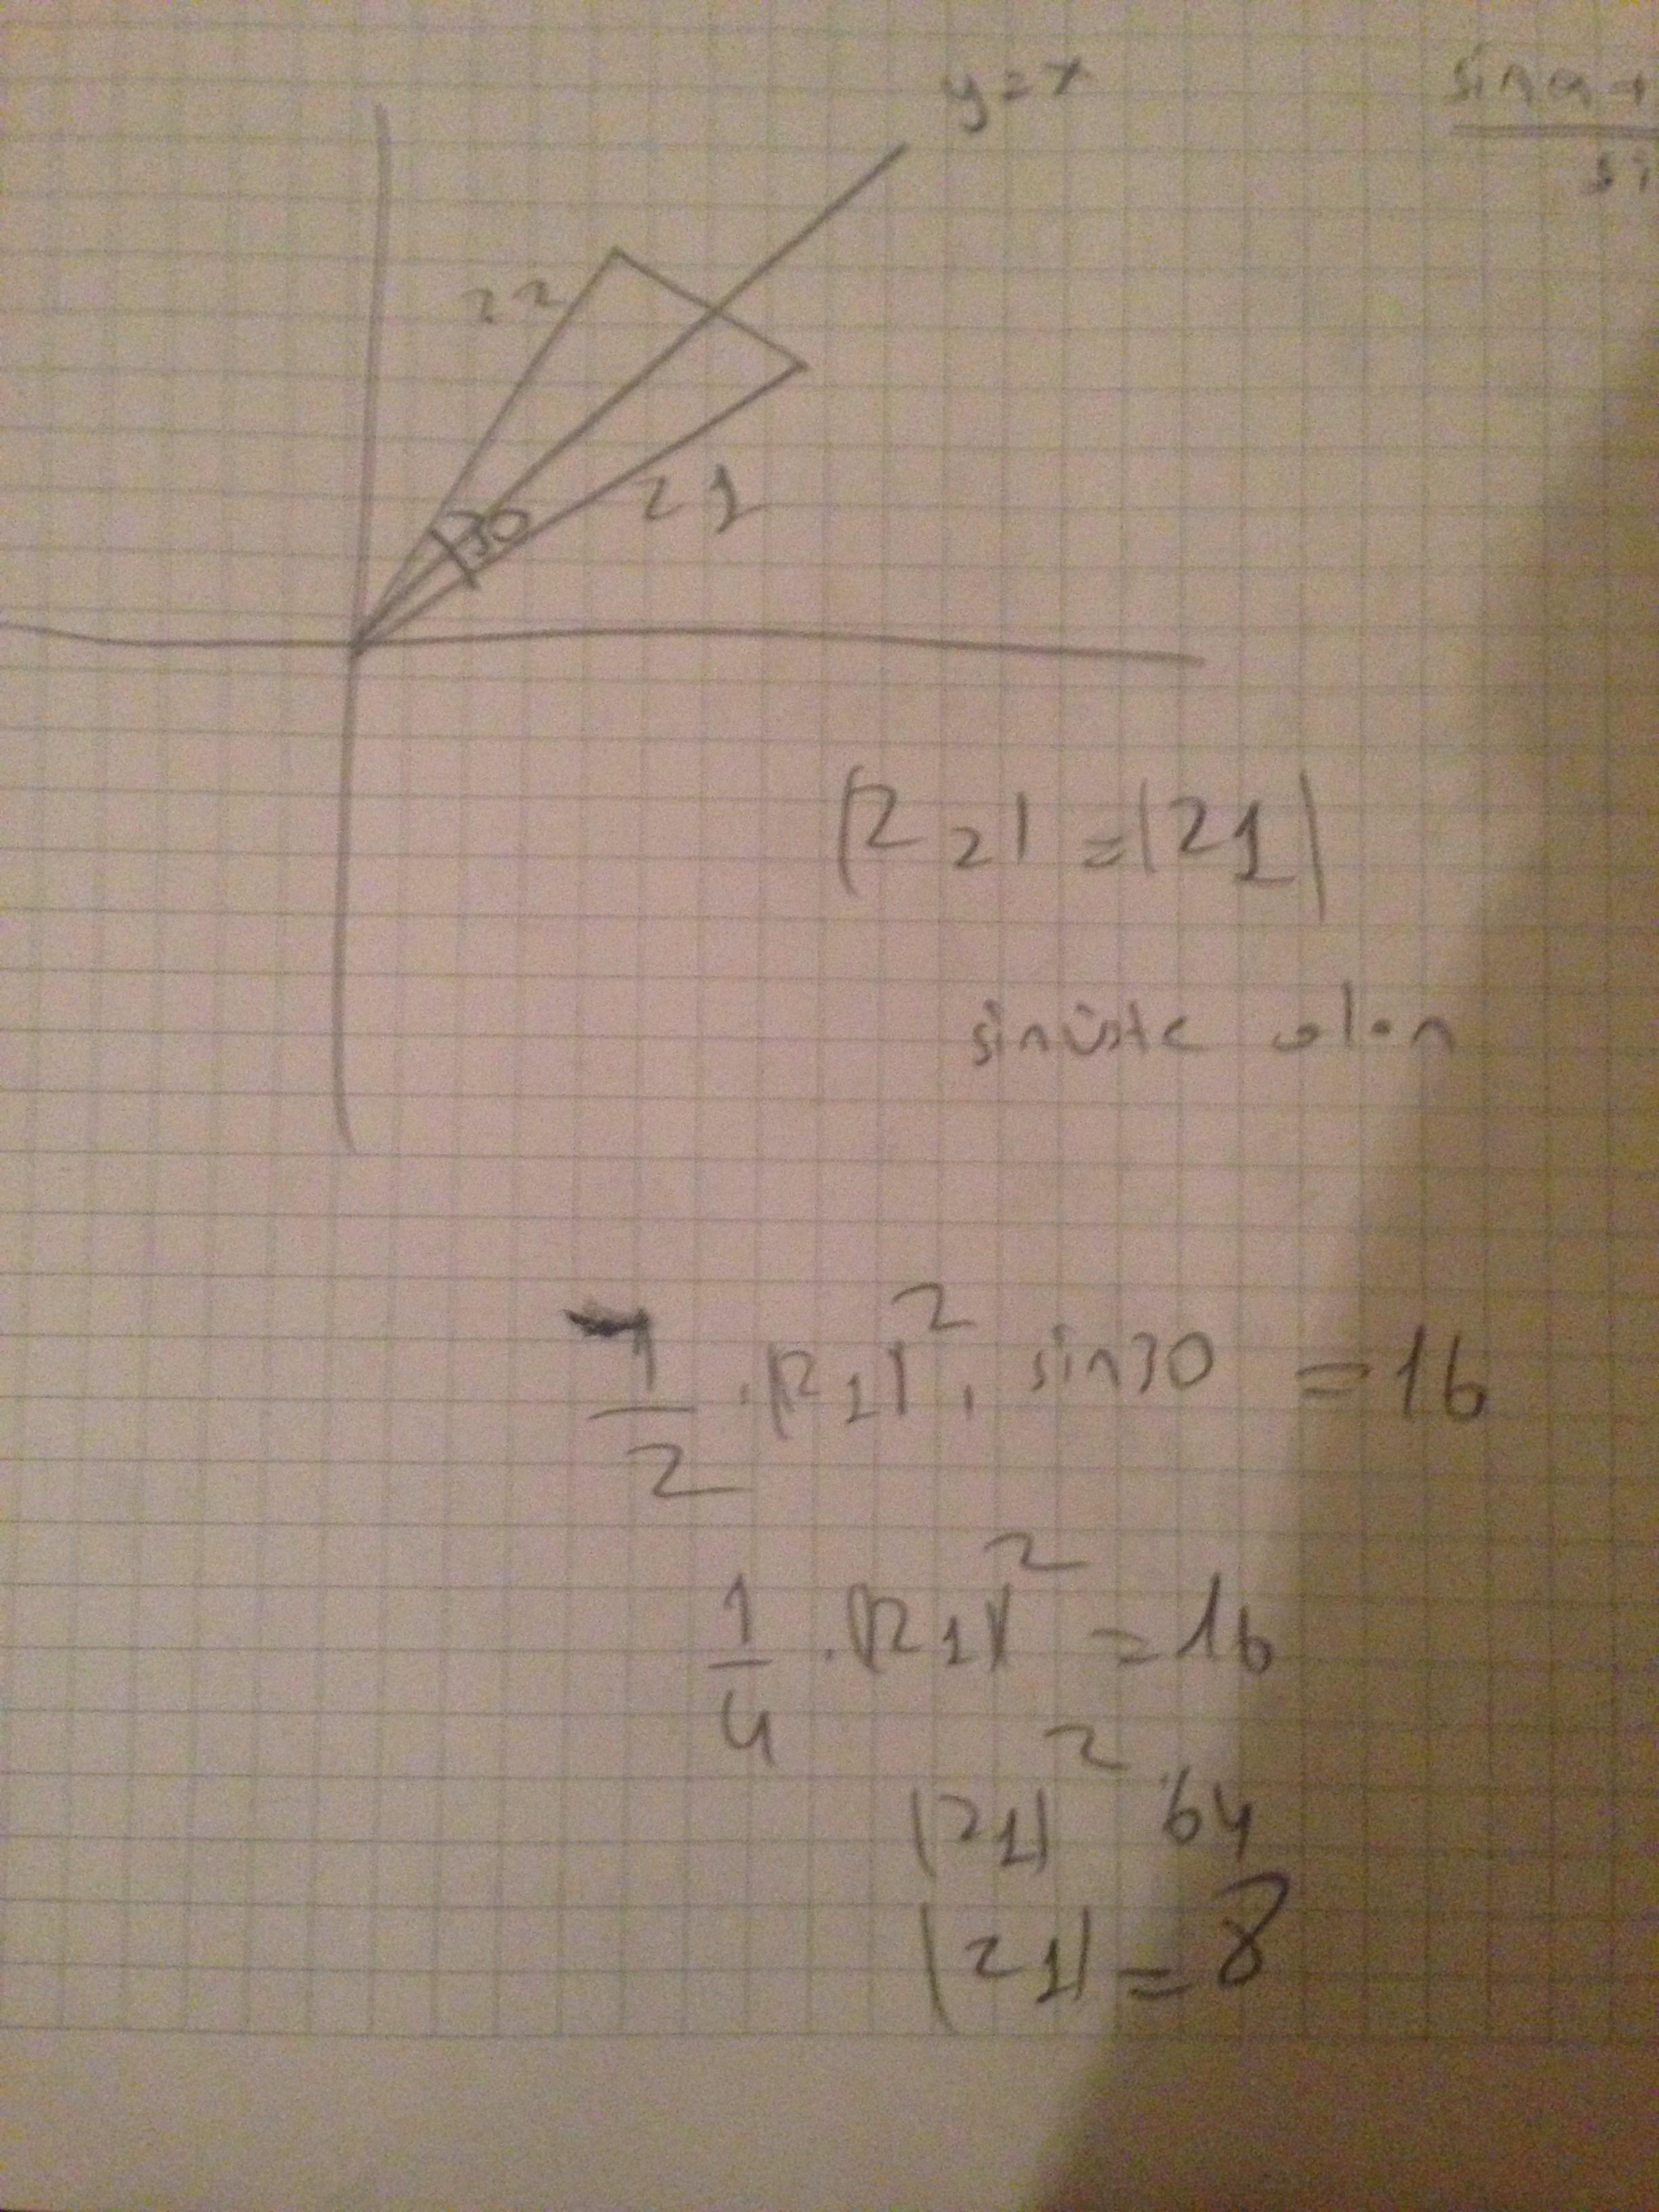 y=x
sinα+
si
z2
30
z1
|z2|=|z1|
sinüste alan
1/2 . |z1|². sin30 = 16
1/4 . |z1|² = 16
|z1|² 64
|z1| = 8